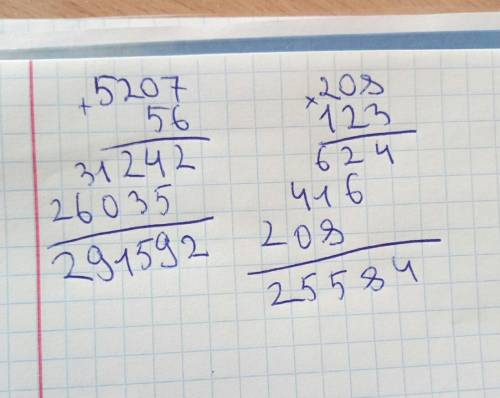 +5207
56
31242
26035
291592
×208
123
624
416
208
25584